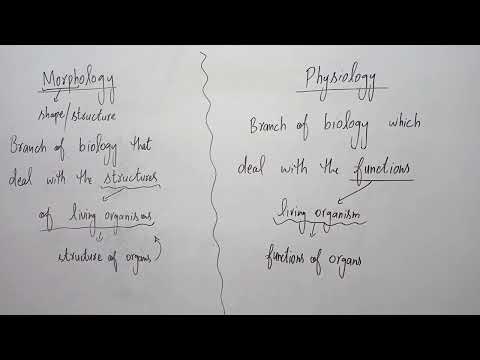 Morphology
shape/structure
Branch of biology that
deal with the structures
of living organisms
structure of organs
Physiology
Branch of biology which
deal with the functions
living organism
functions of organs